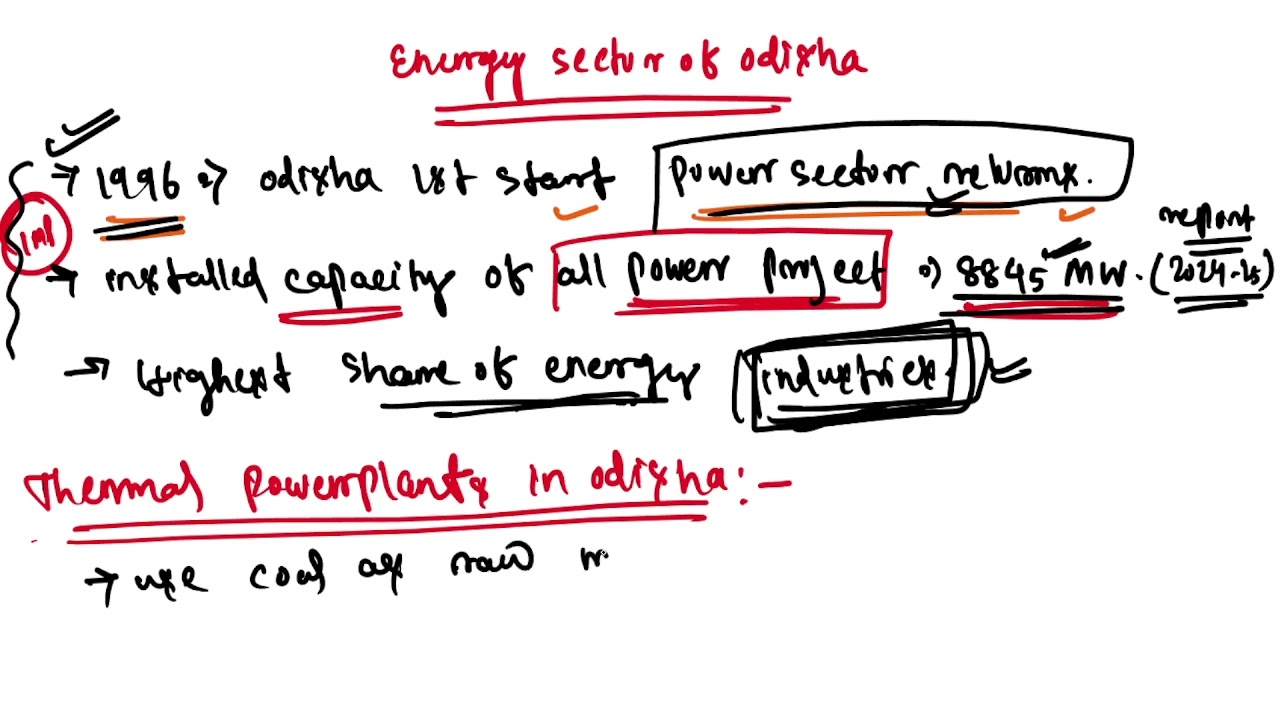 Energy sector of odisha
→ 1996 ⇒ odisha 1st start power sector reforms.
imp
→ installed capacity of all power project ⇒ 8845 MW. (2024-25)
report
→ Highest share of energy (industries.)
Thermal powerplants in odisha:-
→ use coal as raw m